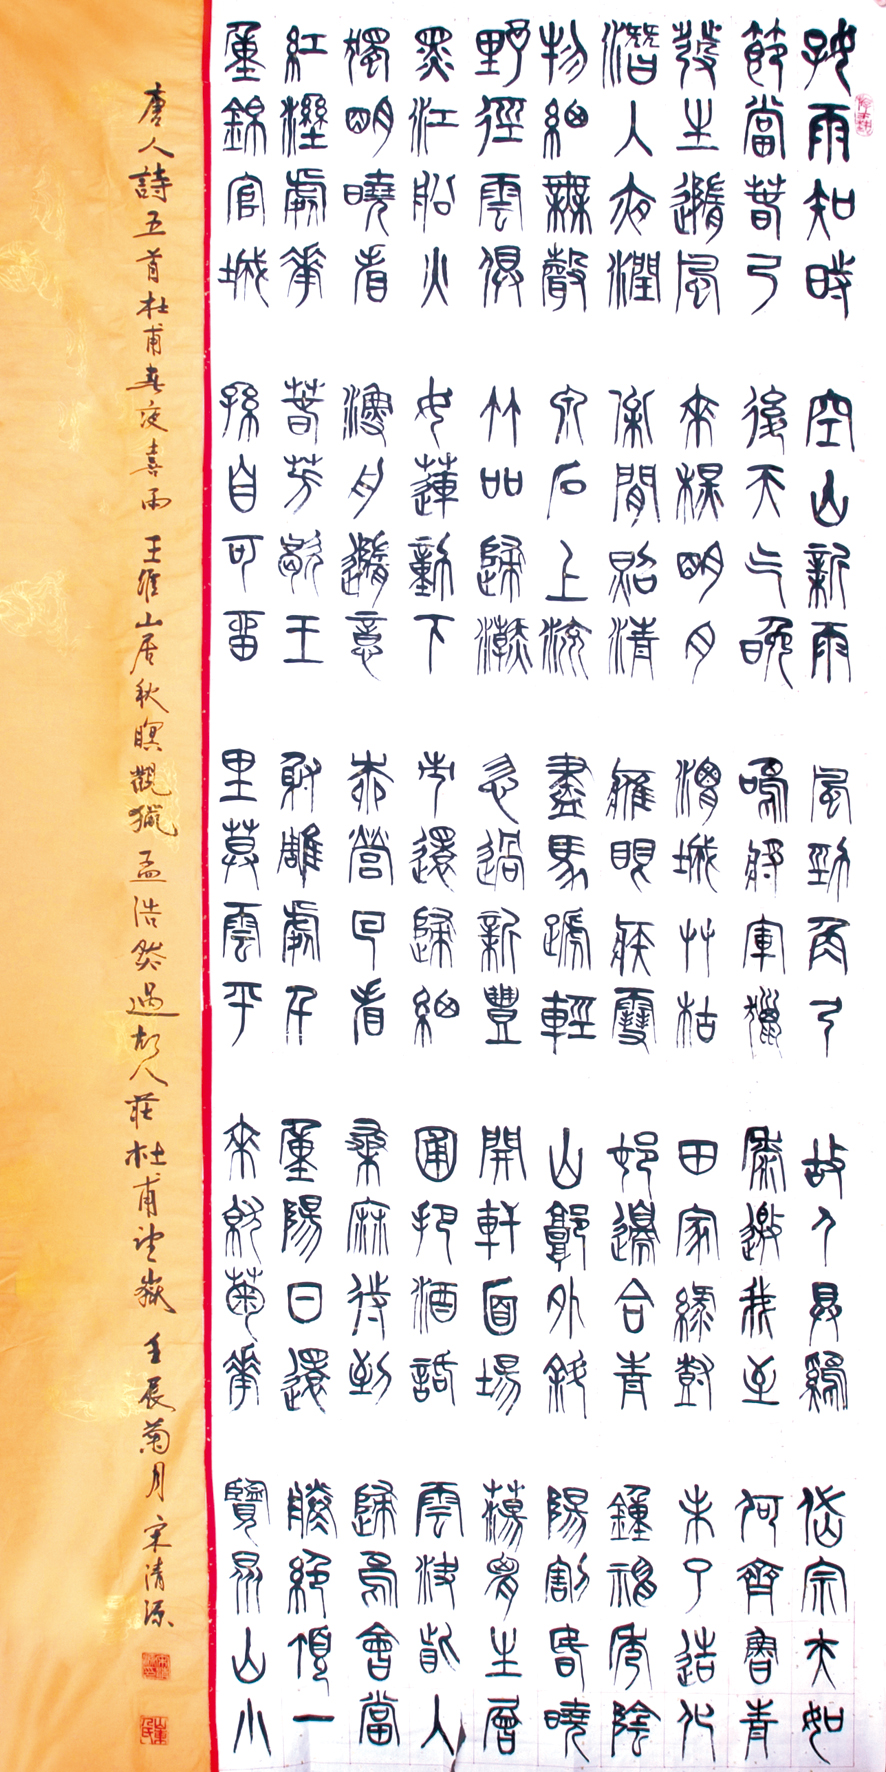 好雨知時
節當春乃
發生隨風
潛入夜潤
物細無聲
野徑雲俱
黑江船火
獨明曉看
紅溼處花
重錦官城
空山新雨
後天气晚
來秋明月
松間照清
泉石上流
竹喧歸浣
女蓮動下
漁舟隨意
春芳歇王
孫自可留
風勁角弓
鳴將軍獵
渭城艸枯
鷹眼疾雪
盡馬蹄輕
忽過新豐
市還歸細
柳營回看
射雕處千
里莫雲平
故人具雞
黍邀我至
田家綠樹
邨邊合青
山郭外斜
開軒面場
圃把酒話
桑麻待到
重陽日還
來就菊花
岱宗夫如
何齊魯青
未了造化
鍾神秀陰
陽割昏曉
蕩胸生層
雲決眥入
歸鳥會當
凌絕頂一
覽眾山小
唐人詩五首杜甫春夜喜雨 王維山居秋暝觀獵孟浩然過故人莊杜甫望嶽 壬辰菊月 宋清源